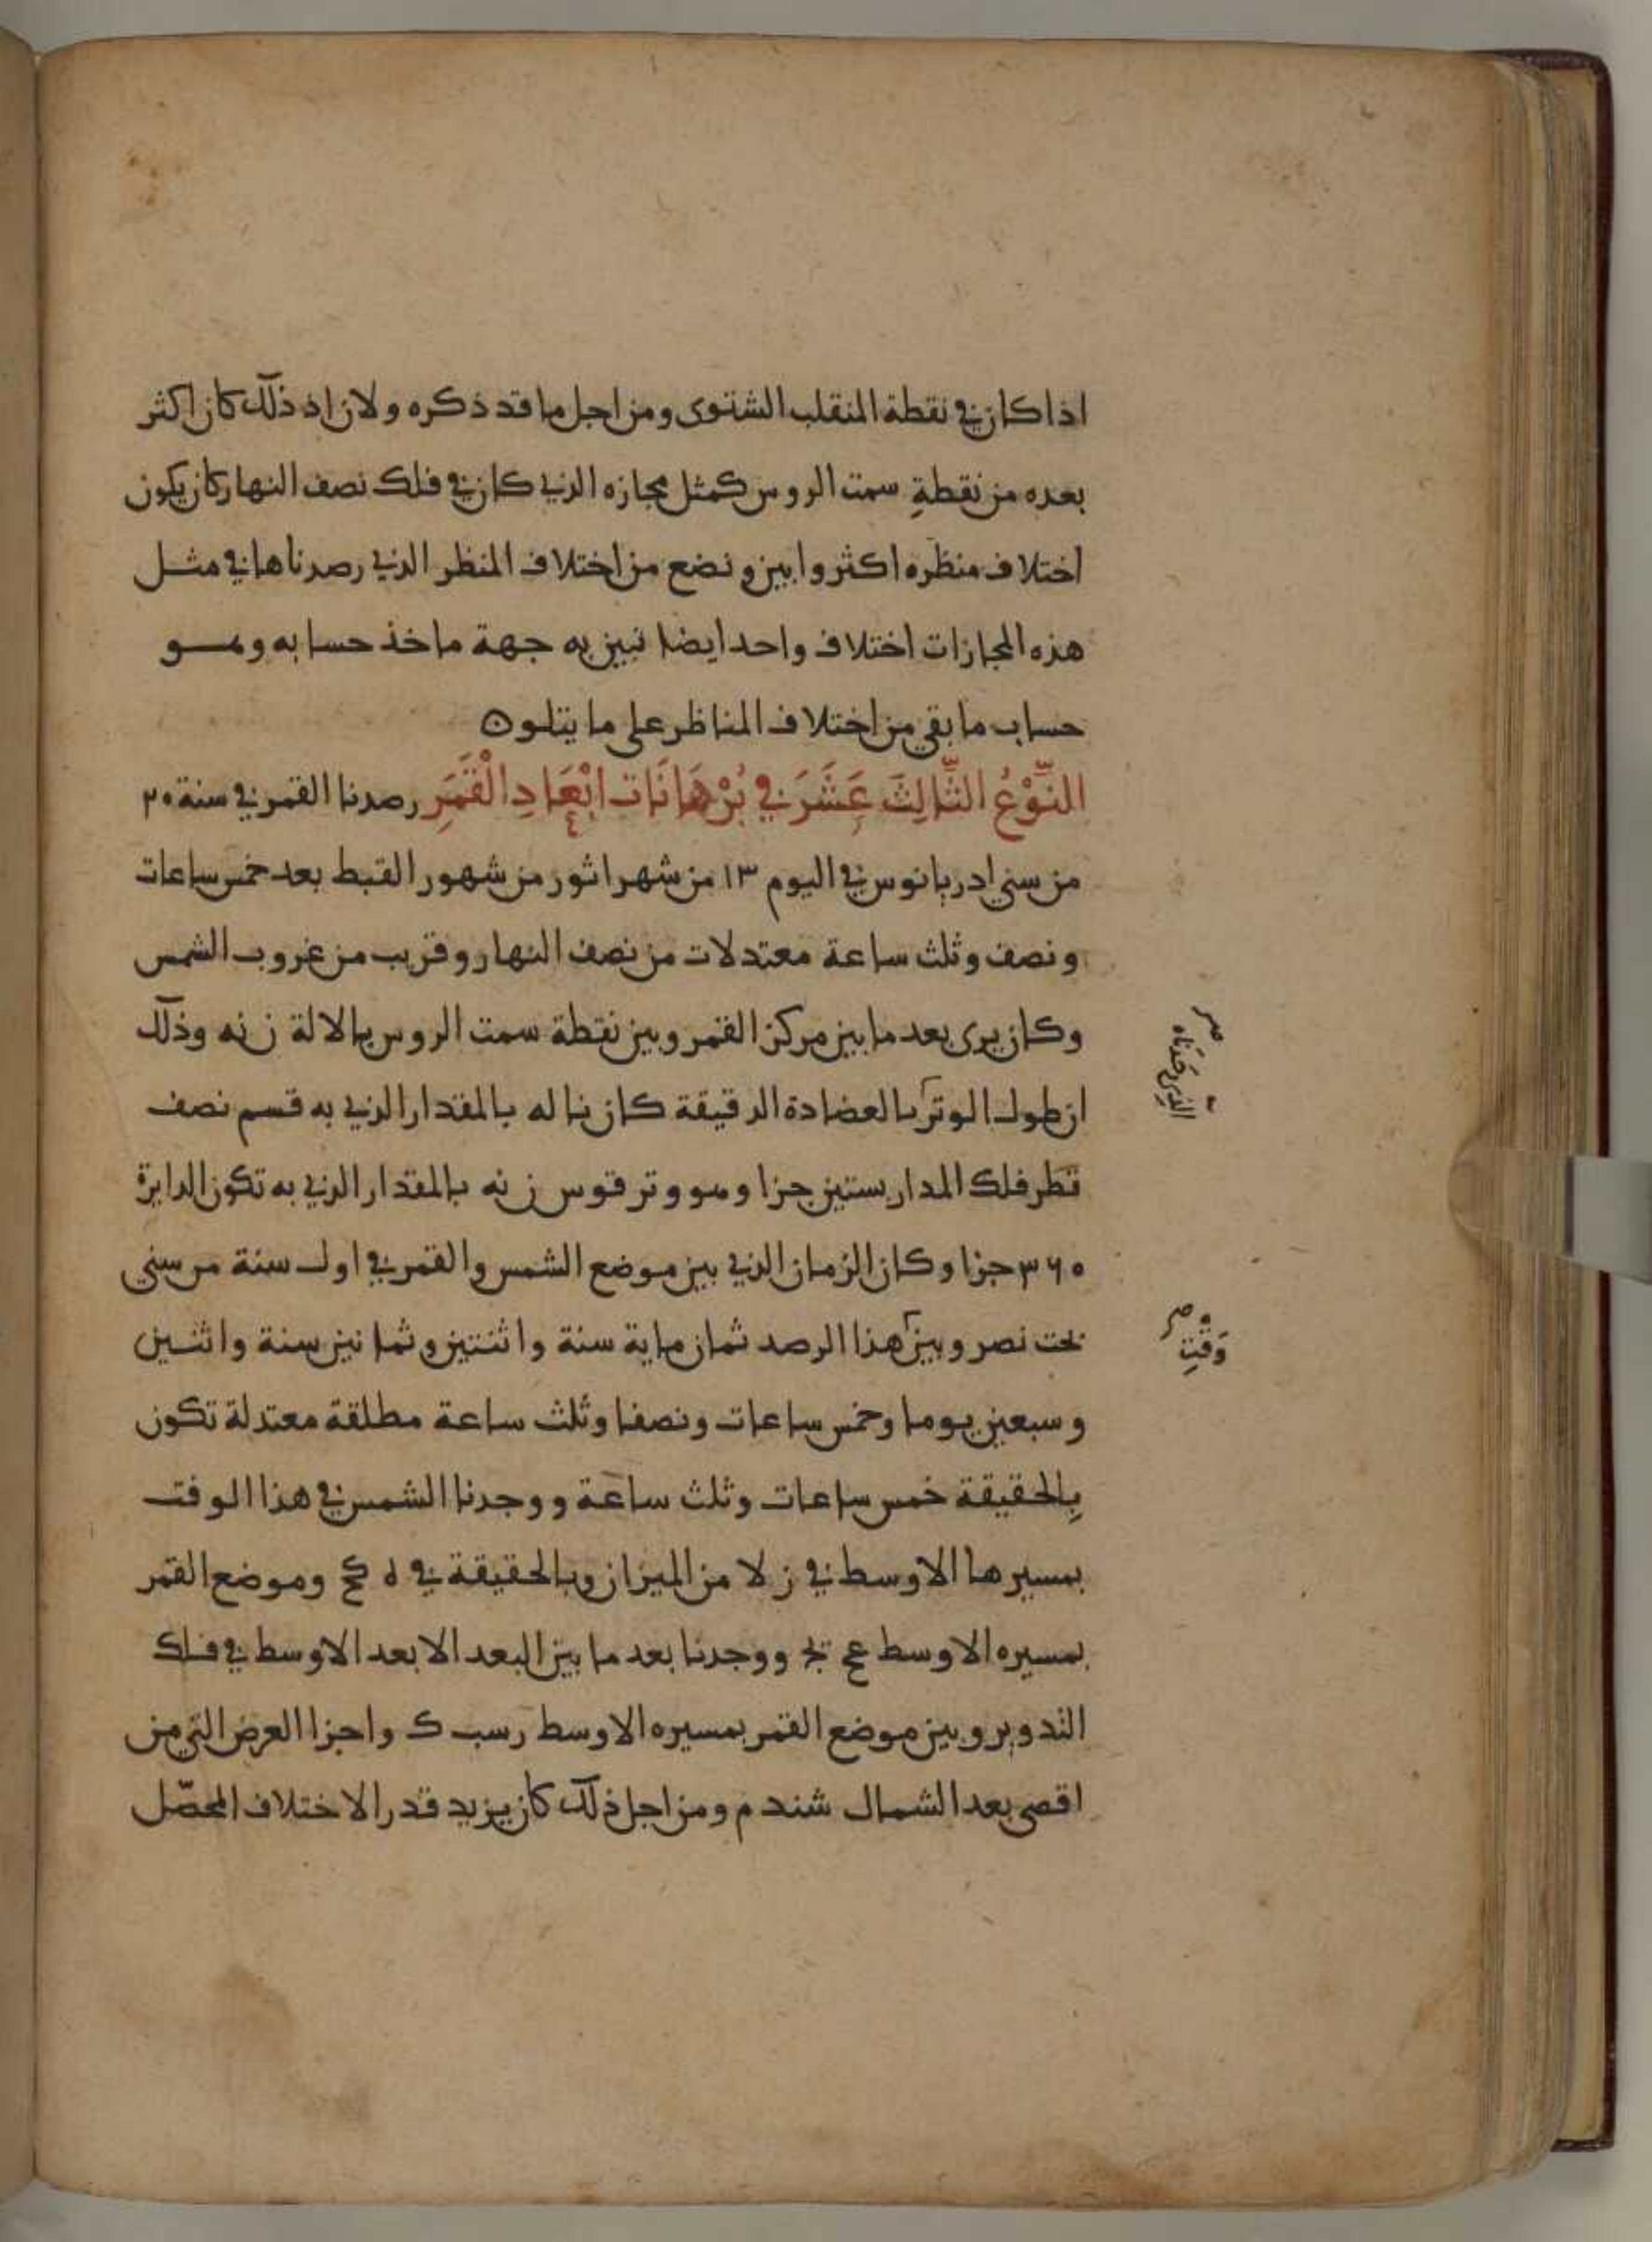 اذا كان في نقطة المنقلب الشتوى ومن اجل ما قد ذكره ولان اذ ذلك كان اكثر
بعده من نقطةِ سمت الروس كمثل مجازه الذي كان في فلك نصف النهار كان يكون
اختلاف منظره اكثر وابين ونضع من اختلاف المنظر الذي رصدناها في مثل
هذه المجازات اختلاف واحد ايضا نبين به جهة ماخذ حسابه وهو
حساب ما بقي من اختلاف المناظر على ما يتلو ه
النَّوْعُ الثَّالِثَ عَشَرَ في بُرْهَانَات ابْعَادِ الْقَمَرِ رصدنا القمر في سنة ٢٠
من سني ادريانوس في اليوم ١٣ من شهر اثور من شهور القبط بعد خمس ساعات
ونصف وثلث ساعة معتدلات من نصف النهار وقريب من غروب الشمس
وكان يرى بعد ما بين مركز القمر وبين نقطة سمت الروس بالالة ن نه وذلك
ان طول الوتر بالعضادة الدقيقة كان نا له بالمقدار الذي به قسم نصف
قطر فلك المدار بستين جزا وهو وتر قوس ن نه بالمقدار الذي به تكون الدايرة
٣٦٠ جزا وكان الزمان الذي بين موضع الشمس والقمر في اول سنة من سني
بخت نصر وبين هذا الرصد ثمان ماية سنة واثنتين وثمانين سنة واثنين
وسبعين يوما وخمس ساعات ونصفا وثلث ساعة مطلقة معتدلة تكون
بِالحقيقة خمس ساعات وثلث ساعة ووجدنا الشمس في هذا الوقت
بمسيرها الاوسط في ز لا من الميزان وبالحقيقة في ه كح وموضع القمر
بمسيره الاوسط ووجدنا بعد ما بين البعد الابعد الاوسط في فلك
التدوير وبين موضع القمر بمسيره الاوسط رسب ك واجزا العرض التي من
اقصى بعد الشمال شند م ومن اجل ذلك كان يزيد قدر الاختلاف المحصّل
الذي وَجَدنَاه
وَقْتِ